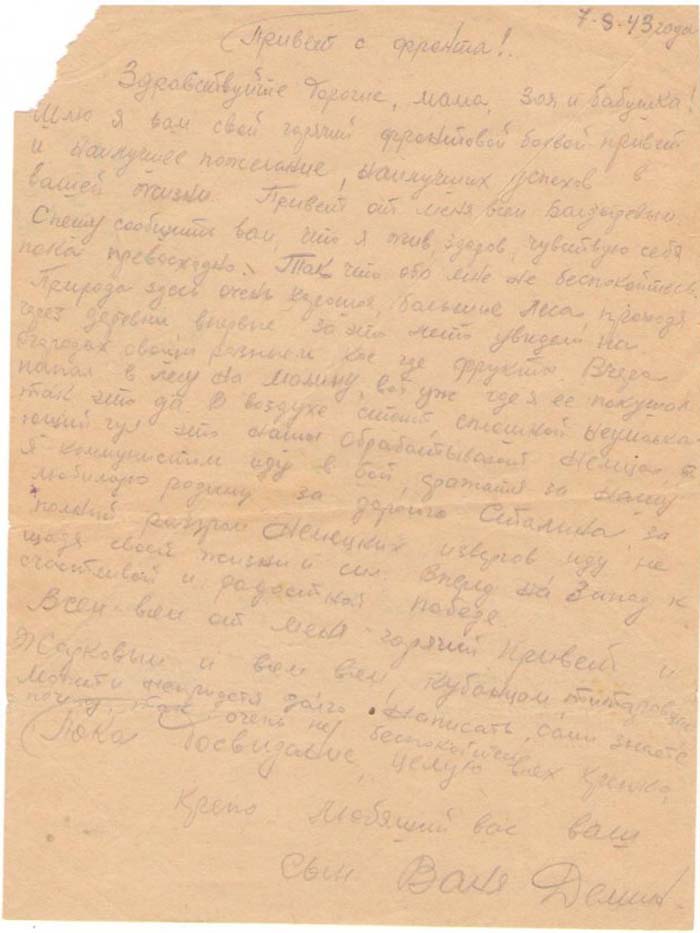 7-8-43 года
Привет с фронта!
Здравствуйте дорогие, мама, Зоя и бабушка!
Шлю я вам свой горячий фронтовой боевой привет
и наилучшее пожелание, наилучших успехов в
вашей жизни. Привет от меня всем
Спешу сообщить вам, что я жив, здоров, чувствую себя
пока превосходно. Так что обо мне не беспокойтесь
Природа здесь очень хорошая, большие леса, проходя
через деревни впервые за это лето увидел на
огородах овощи разные и кое где фрукты. Вчера
попал в лесу на малину, вот уж где я ее покушал
так это да. В воздухе стоит сплошной неумолка-
ющий гул это наши обрабатывают немца, и
я коммунистом иду в бой, сражатся за нашу
любимую родину за дорогого Сталина за
полный разгром немецких извергов иду не
щадя своей жизни и сил. Вперед на Запад к
счастливой и радостной победе.
Всем всем от меня горячий привет и
Жарковым и всем всем кубанцам
может и непридется долго написать, сами знаете
почему, так очень не беспокойтесь
Пока Досвидание, целую всех крепко,
крепо любящий вас ваш
сын Ваня Демин.